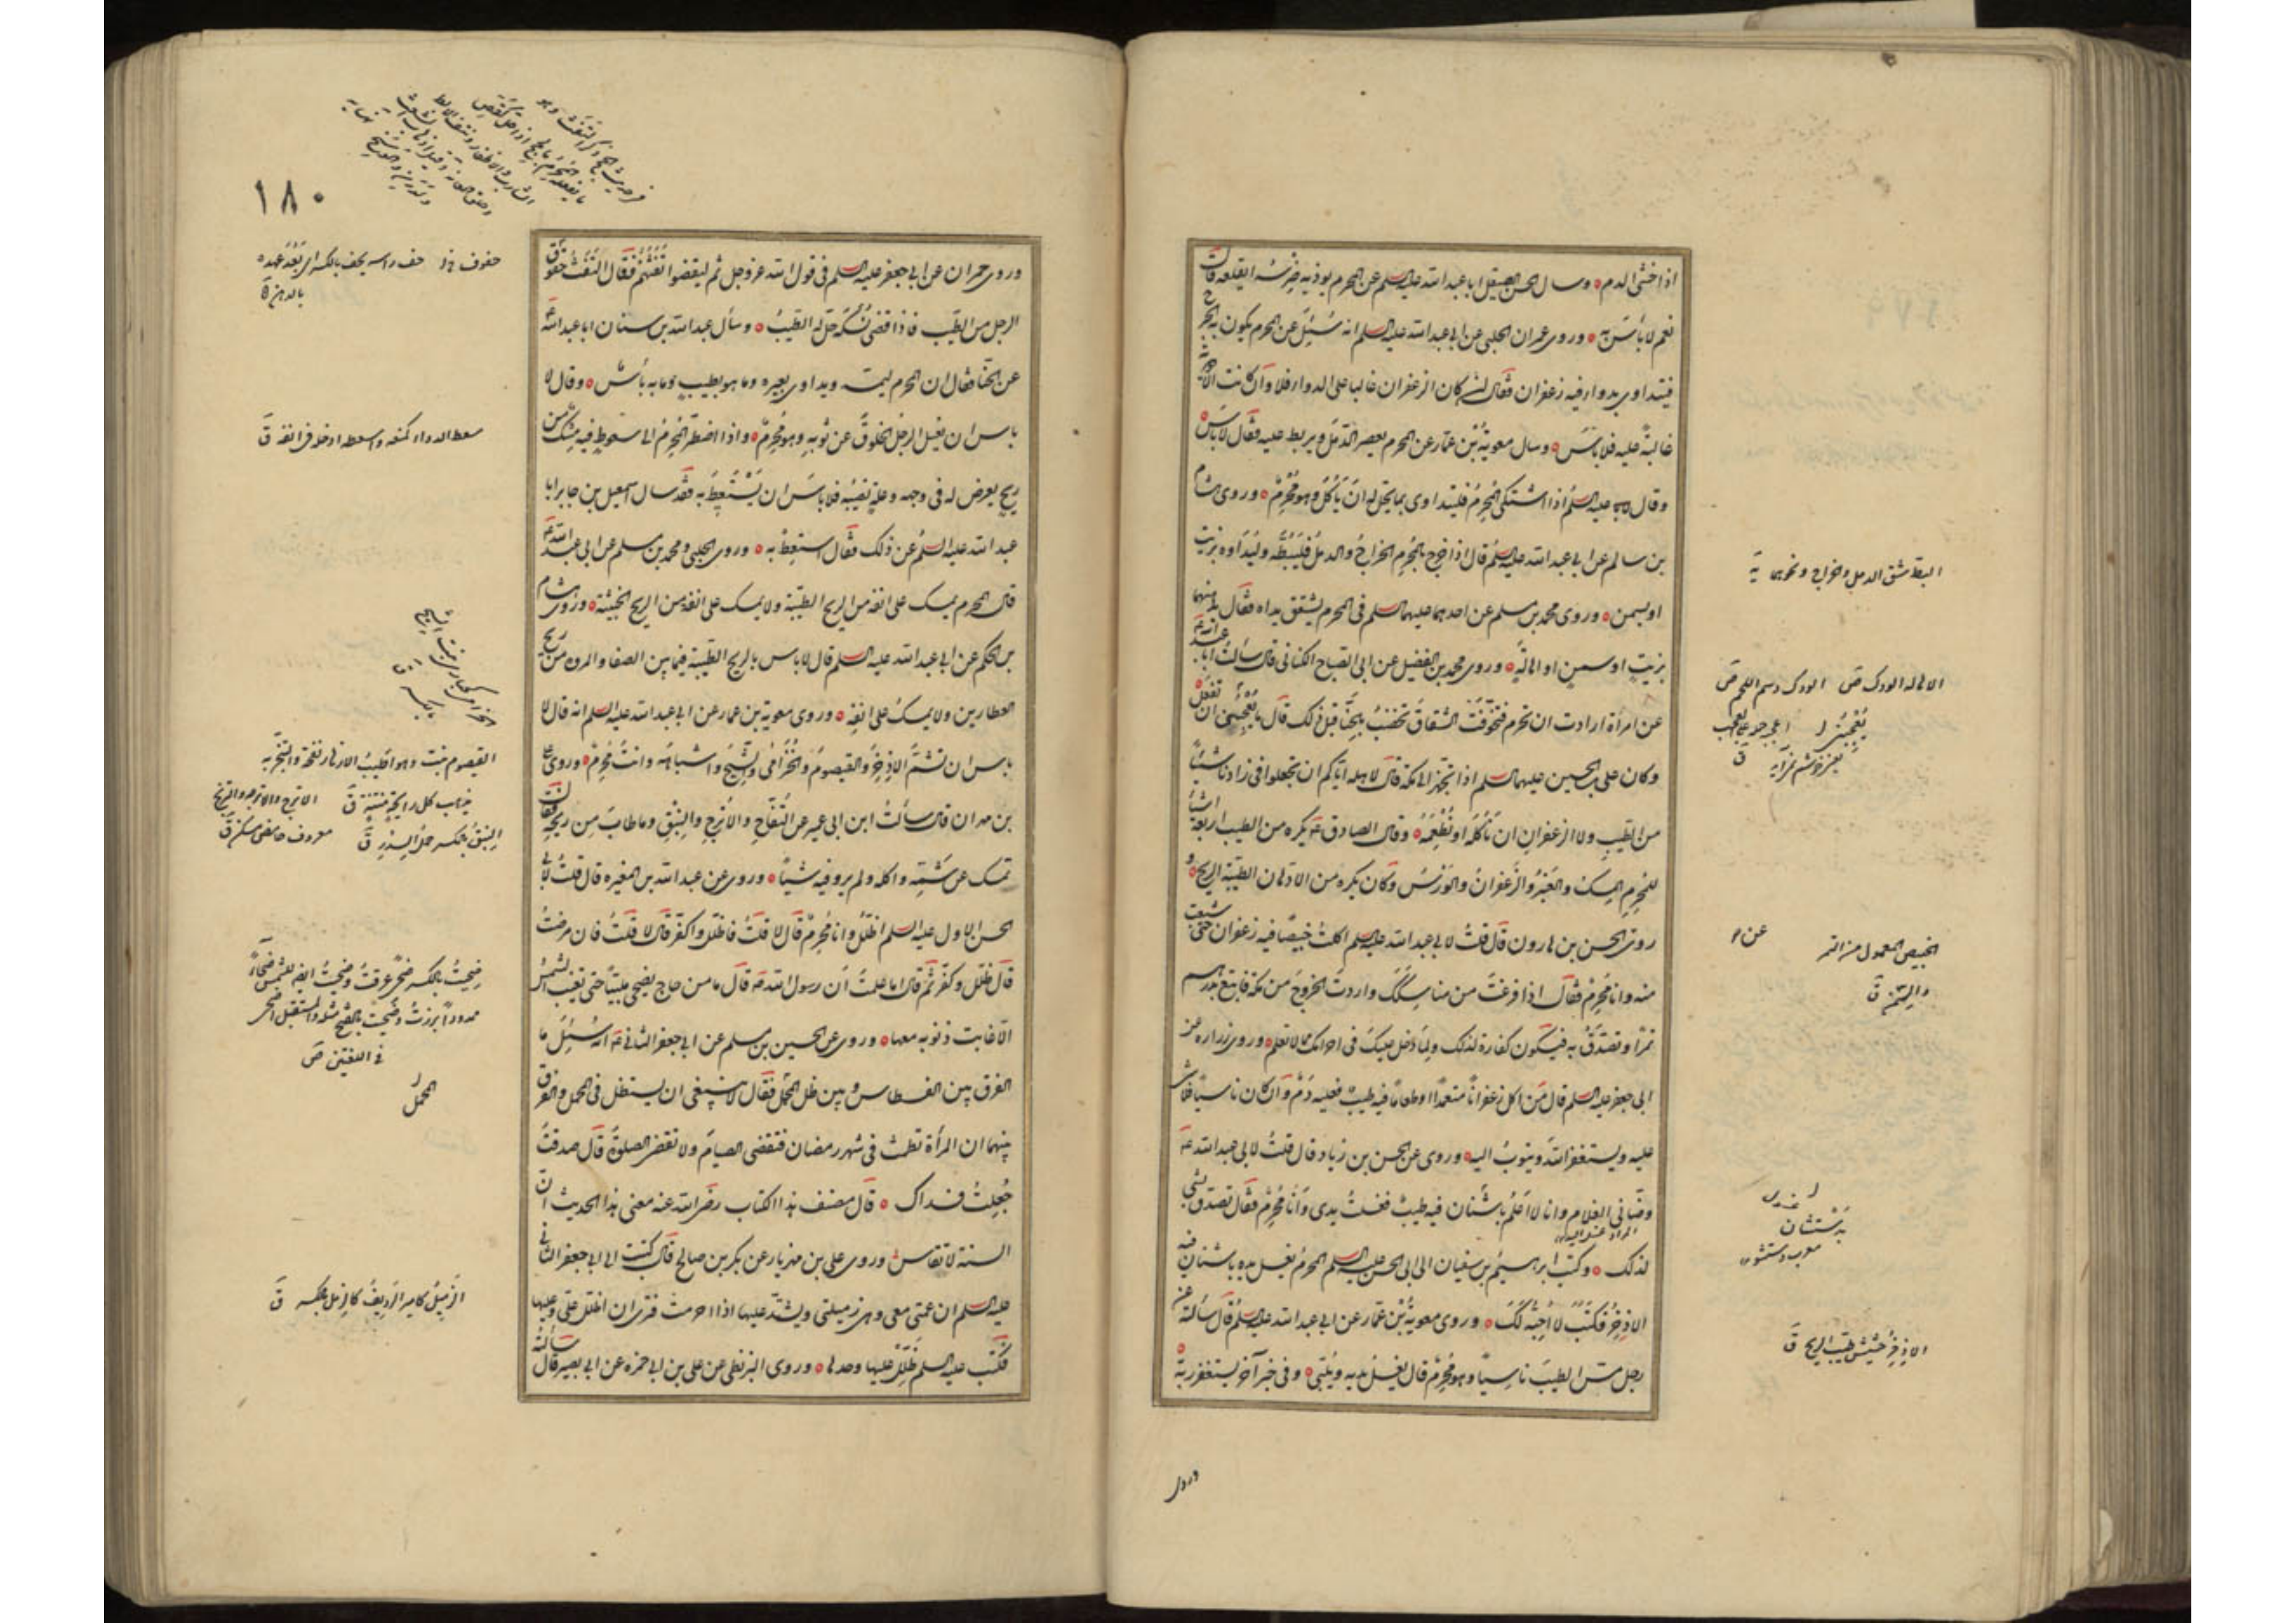 اذا خشى الدم وسال الحسن الصيقل ابا عبد الله عليه السلم عن المحرم يوذيه ضرسه ايقلعه قال
نعم لا بأس به وروى عمران الحلبى عن ابى عبد الله عليه السلم انه سُئِلَ عن المحرم يكون به الجرح
فيتداوى بدواء فيه زعفران فقال ان كان الزعفران غالبا على الدواء فلا وان كانت الادوية
غالبةً عليه فلا بأسَ وسال معوية بن عمار عن المحرم يعصر الدمل ويربط عليه فقال لا باس
وقال عليه السلم اذا اشتكى المحرم فليتداوى بما يحل له ان يأكل وهو مُحْرِمٌ وروى هشام
بن سالم عن ابى عبد الله عليه السلم قال اذا خرج بالمحرم الخراج والدمل فليبطه وليداوه بزيت
او بسمن وروى محمد بن مسلم عن احدهما عليهما السلم فى المحرم يشقق يداه فقال يدهنهما
بزيت او سمن او اهالة وروى محمد بن الفضيل عن ابى الصباح الكنانى قال سألت ابا عبد الله
عن امرأة ارادت ان تحرم فتخوفت الشقاق تخضب بالحنا قبل ذلك قال ما يعجبنى ان تفعل
وكان على بن الحسين عليهما السلم اذا تجهز الى مكة قال لاهله اياكم ان تجعلوا فى زادنا شيئاً
من الطيب ولا الزعفران ان نأكله او نُطْعِمَهُ وقال الصادق يكره من الطيب اربعة اشيا
للمحرم المسك والعنبر والزعفران والورس وكان يكره من الادهان الطيبة الريح و
روى الحسن بن هارون قال قلت لابى عبد الله عليه السلم اكلت خبيصا فيه زعفران حتى شبعت
منه وانا محرم فقال اذا فرغت من مناسكك واردت الخروج من مكة فابتع بدرهم
تمراً وتصدق به فيكون كفارة لذلك ولما دخل عليك فى احرامك مما لا تعلم وروى زرارة عن
ابى جعفر عليه السلم قال من اكل زعفراناً متعمداً او طعاماً فيه طيب فعليه دَمٌ وان كان ناسياً فلا شى
عليه ويستغفر الله ويتوب اليه وروى عن الحسن بن زياد قال قلت لابى عبد الله
وضأنى الغلام وانا لا اعلم باشنان فيه طيب فغسلت يدى وانا محرم فقال تصدق بشى
لذلك وكتب ابرهيم بن سفيان الى ابى الحسن عليه السلم المحرم يغسل يده باشنان فيه
الاذخر فكتب لا احبه لك وروى معوية بن عمار عن ابى عبد الله عليه السلم قال سالته عن
رجل مس الطيب ناسياً وهو محرم قال يغسل يديه ويلبى وفى خبر آخر يستغفر ربه
البط شق الدمل والخراج ونحوهما
الاهالة الودك ص الودك دسم اللحم ص
الخبيص المعمول من التمر
والسمن ق
بدستشان
معرب دستشو
الاذخر حشيش طيب الريح ق
وروى
١٨٠
وروى حمران عن ابى جعفر عليه السلم فى قول الله عز وجل ثم ليقضوا تفثهم فقال التفث حفوف
الرجل من الطيب فاذا قضى نسكه حل له الطيب وسأل عبد الله بن سنان ابا عبد الله
عن الحنا فقال ان المحرم ليمسه ويداوى بعيره وما هو بطيب وما به بأس وقال لا
باس ان يغسل الرجل الخلوق عن ثوبه وهو محرم واذا اضطر المحرم الى سعوط فيه مسك من
ريح يعرض له فى وجهه وعلة تصيبه فلا باس ان يستعط به فقد سال اسمعيل بن جابر ابا
عبد الله عليه السلم عن ذلك فقال استعط به وروى الحلبى ومحمد بن مسلم عن ابى عبد الله
قال المحرم يمسك على انفه من الريح الطيبة ولا يمسك على انفه من الريح الخبيثة وروى هشام
بن الحكم عن ابى عبد الله عليه السلم قال لا باس بالريح الطيبة فيما بين الصفا والمروه من ريح
العطارين ولا يمسك على انفه وروى معوية بن عمار عن ابى عبد الله عليه السلم انه قال لا
باس ان تشم الاذخر والقيصوم والخزامى والشيح واشباهه وانت محرم وروى على
بن مهزيار قال سألت ابن ابى عمير عن التفاح والاترج والنبق وما طاب من ريحه فقال
تمسك عن شمه واكله ولم يرو فيه شيئاً وروى عن عبد الله بن المغيره قال قلت لابى
الحسن الاول عليه السلم اظلل وانا محرم قال لا قلت فاظلل واكفر قال لا قلت فان مرضت
قال ظلل وكفر ثم قال اما علمت ان رسول الله قال ما من حاج يضحى ملبياً حتى تغيب الشمس
الا غابت ذنوبه معها وروى عن الحسين بن مسلم عن ابى جعفر الثانى انه سئل ما
الفرق بين الفسطاس وبين ظل المحمل فقال لا ينبغى ان يستظل فى المحمل والفرق
بينهما ان المرأة تطمث فى شهر رمضان فتقضى الصيام ولا تقضى الصلوة قال صدقت
جعلت فداك قال مصنف هذا الكتاب رضى الله عنه معنى هذا الحديث ان
السنة لا تقاس وروى على بن مهزيار عن بكر بن صالح قال كتبت الى ابى جعفر الثانى
عليه السلم ان عمتى معى وهى زميلتى ويشتد عليها اذا احرمت فترى ان اظلل على وعليها
فكتب عليه السلم ظلل عليها وحدها وروى البزنطى عن على بن ابى حمزه عن ابى بصير قال سألته
سعط الدواء كمنعه واسعطه ادخله فى انفه ق
النبق بالكسر حمل السدر ق
فى اللغتين ص
المحمل
الزميل كامير الرديف كالزمل بالكسر ق